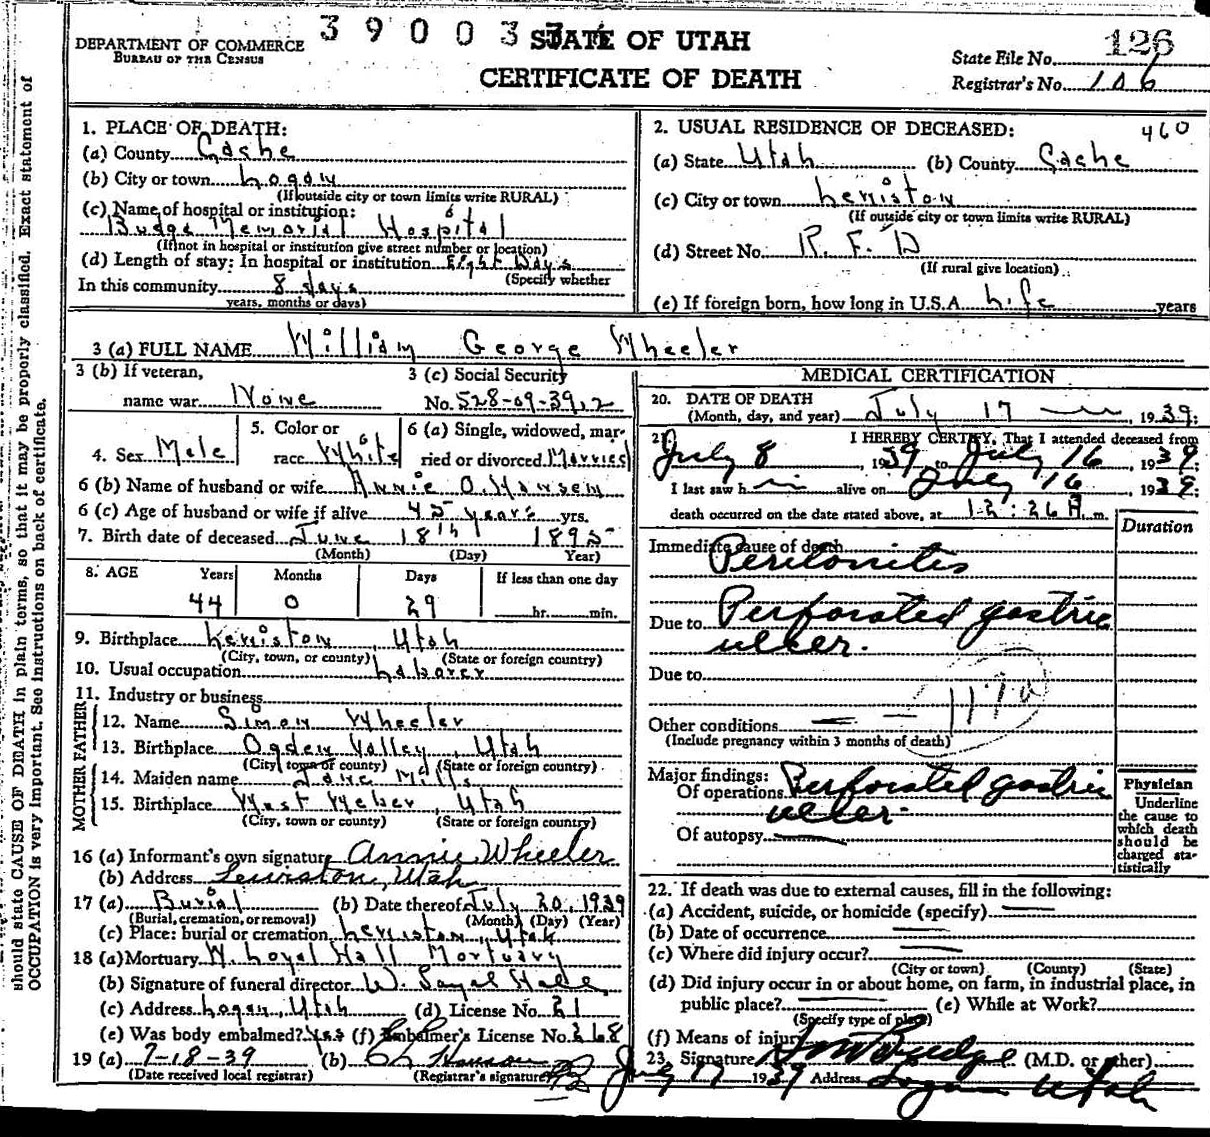 39003
DEPARTMENT OF COMMERCE
BUREAU OF THE CENSUS
STATE OF UTAH
CERTIFICATE OF DEATH
126
State File No.
Registrar's No. 106
should state CAUSE OF DEATH in plain terms, so that it may be properly classified. Exact statement of
OCCUPATION is very important. See instructions on back of certificate.
1. PLACE OF DEATH:
(a) County Cache
(b) City or town Logan
(If outside city or town limits write RURAL)
(c) Name of hospital or institution:
Budge Memorial Hospital
(If not in hospital or institution give street number or location)
(d) Length of stay: In hospital or institution Eight Days
(Specify whether
In this community 8 days
years, months or days)
2. USUAL RESIDENCE OF DECEASED: 460
(a) State Utah (b) County Cache
(c) City or town Lewiston
(If outside city or town limits write RURAL)
(d) Street No. R. F. D
(If rural give location)
(e) If foreign born, how long in U.S.A. Life years
3 (a) FULL NAME William George Wheeler
3 (b) If veteran,
name war None
3 (c) Social Security
No. 528-09-3912
4. Sex Male
5. Color or
race White
6 (a) Single, widowed, mar-
ried or divorced Married
6 (b) Name of husband or wife Annie O. Hansen
6 (c) Age of husband or wife if alive 45 years yrs.
7. Birth date of deceased June 18th 1895
(Month) (Day) Year)
8. AGE Years Months Days If less than one day
44 0 29 hr. min.
9. Birthplace Lewiston, Utah
(City, town, or county) (State or foreign country)
10. Usual occupation Laborer
11. Industry or business
FATHER
12. Name Simon Wheeler
13. Birthplace Ogden Valley, Utah
(City town or county) (State or foreign country)
MOTHER
14. Maiden name Jane Mills
15. Birthplace West Weber, Utah
(City, town or county) (State or foreign country)
16 (a) Informant's own signature Annie Wheeler
(b) Address Lewiston, Utah
17 (a) Burial (b) Date thereof July 20, 1939
(Burial, cremation, or removal) (Month) (Day) (Year)
(c) Place: burial or cremation Lewiston, Utah
18 (a) Mortuary W. Loyal Hall Mortuary
(b) Signature of funeral director W. Loyal Hall
(c) Address Logan, Utah (d) License No. 21
(e) Was body embalmed? Yes (f) Embalmer's License No. 268
19 (a) 7-18-39 (b)
(Date received local registrar) (Registrar's signature)
MEDICAL CERTIFICATION
20. DATE OF DEATH
(Month, day, and year) July 17, 1939;
21. I HEREBY CERTIFY, That I attended deceased from
July 8, 1939 to July 16, 1939
I last saw h im alive on July 16, 1939
death occurred on the date stated above, at 12:26 A m.
Duration
Immediate cause of death
Peritonitis
Due to Perforated gastric
ulcer.
Due to
117a
Other conditions
(Include pregnancy within 3 months of death)
Major findings:
Of operations Perforated gastric
ulcer
Of autopsy
Physician
Underline
the cause to
which death
should be
charged sta-
tistically
22. If death was due to external causes, fill in the following:
(a) Accident, suicide, or homicide (specify)
(b) Date of occurrence
(c) Where did injury occur?
(City or town) (County) (State)
(d) Did injury occur in or about home, on farm, in industrial place, in
public place? (e) While at Work?
(Specify type of place)
(f) Means of injury
23. Signature Budge (M.D. or other)
July 17 1939 Address Logan Utah